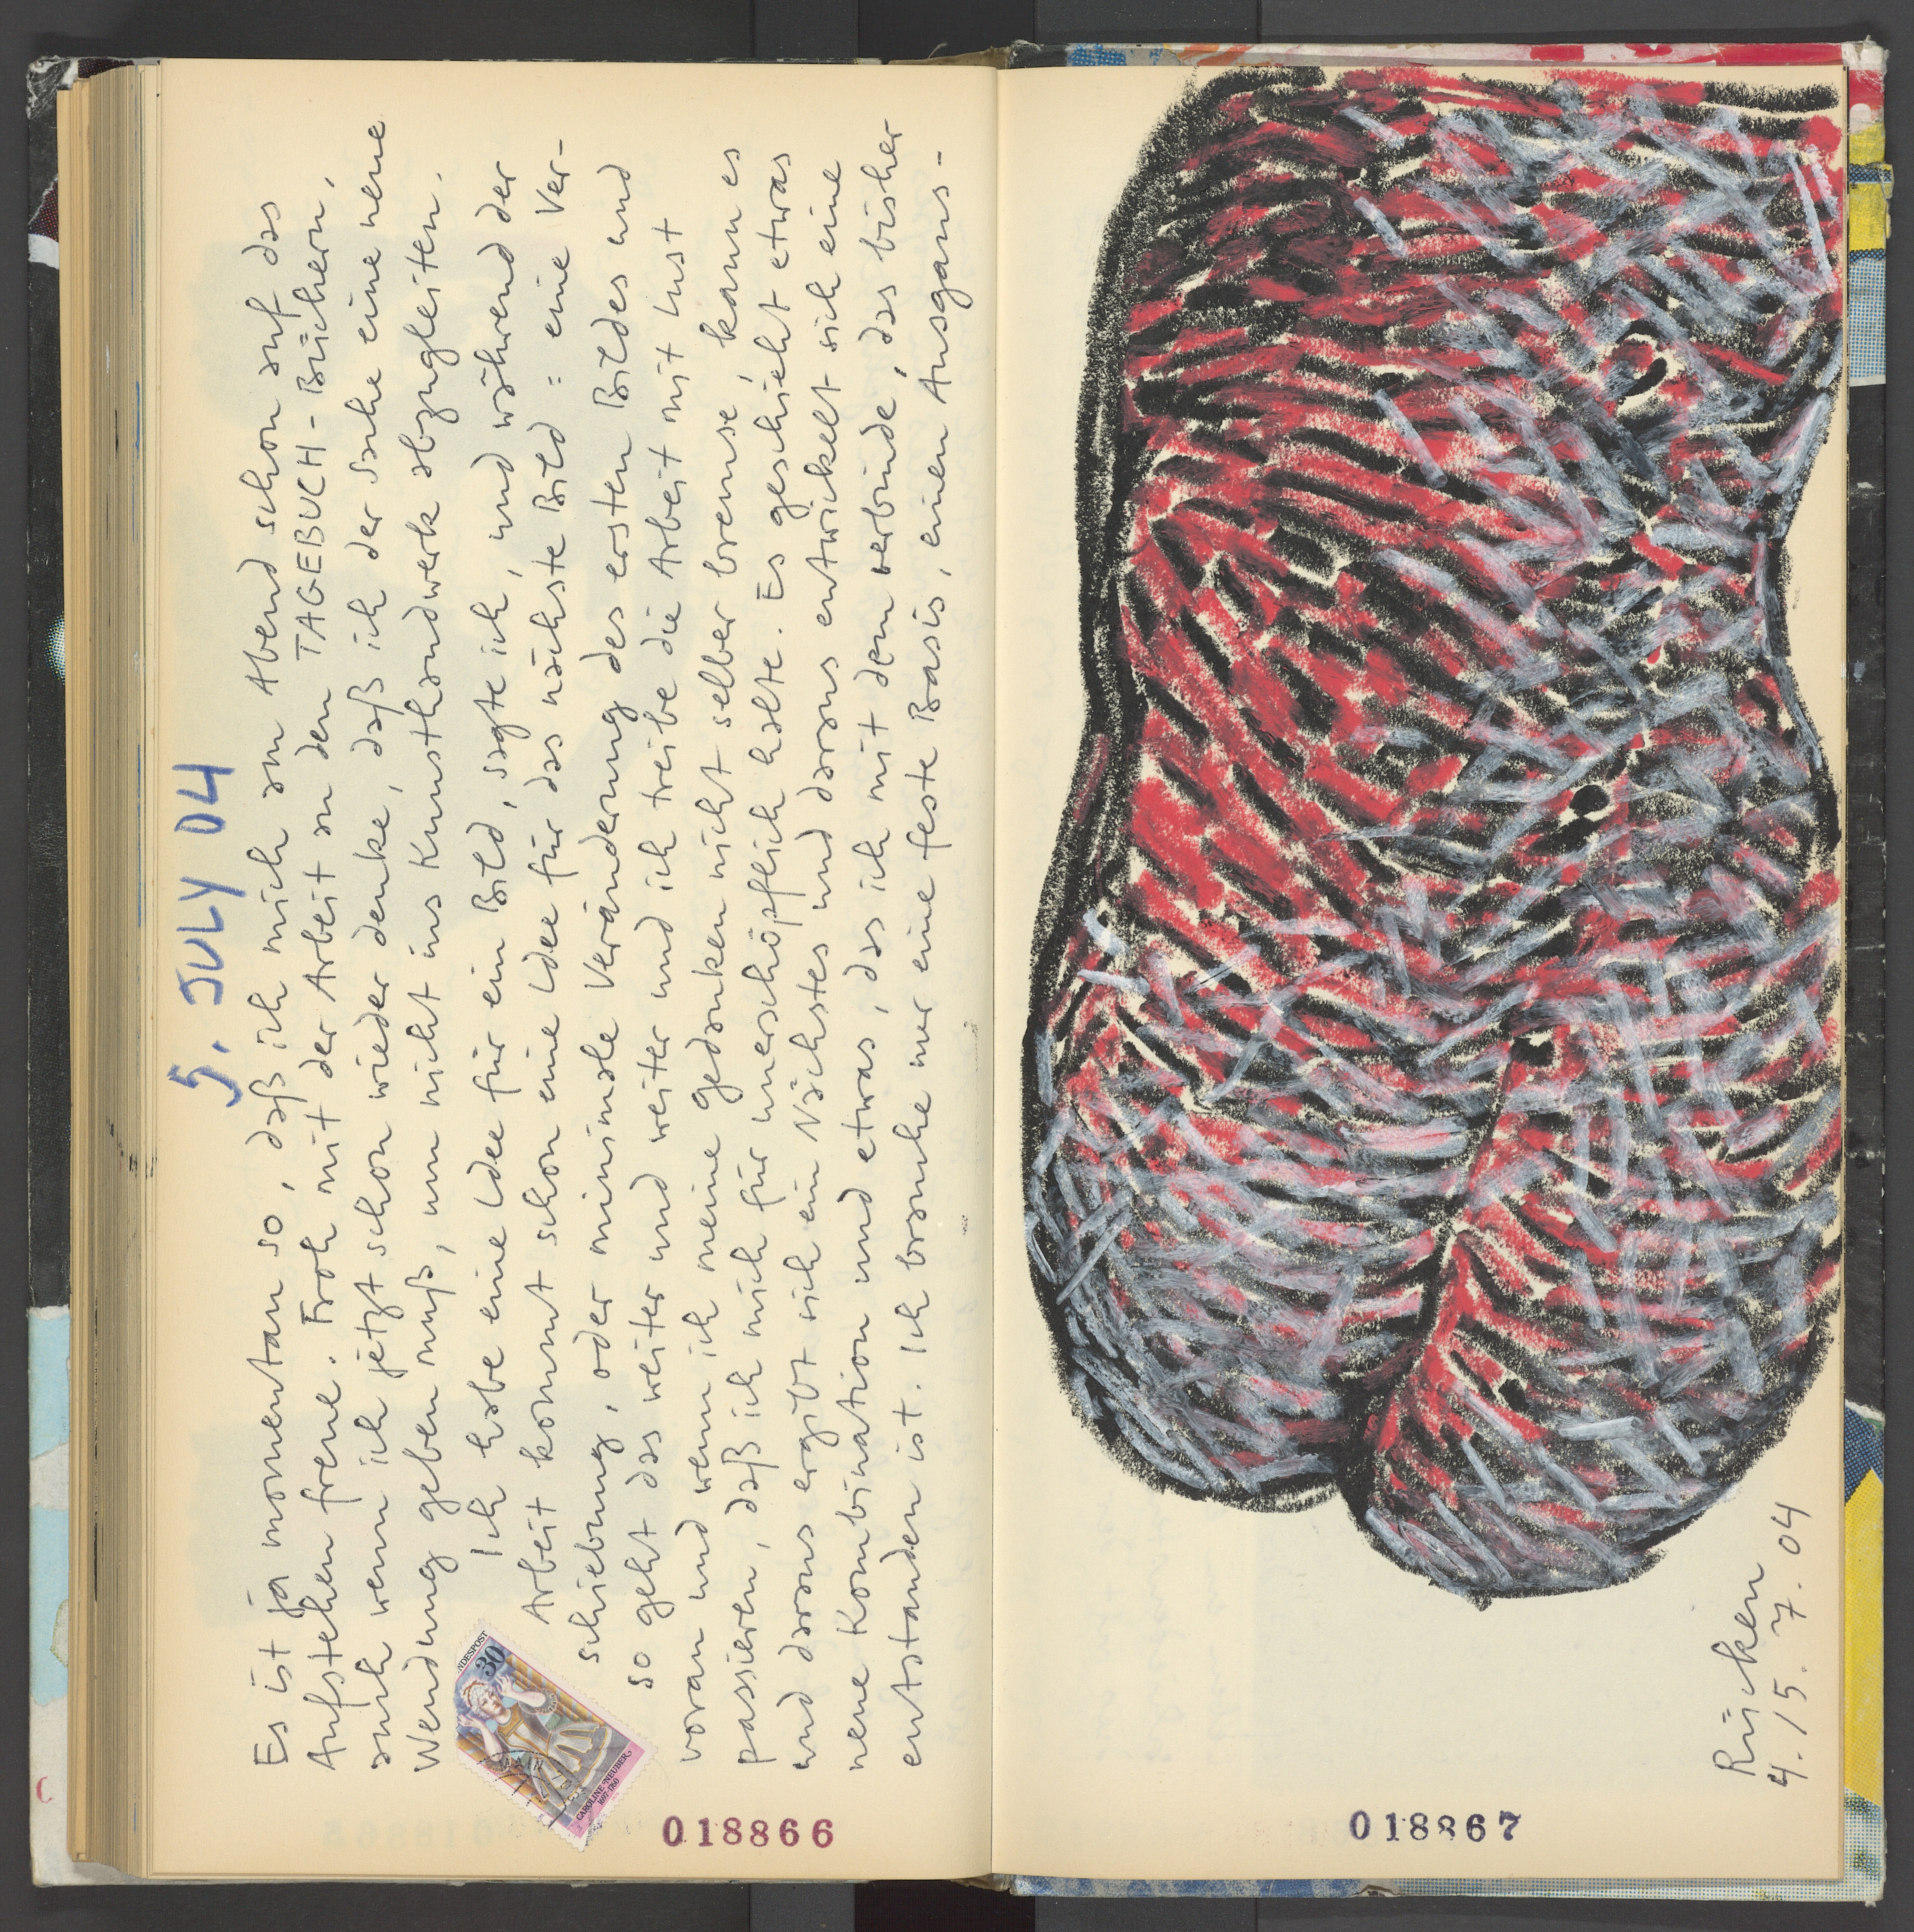 5. JULY 04
Es ist ja momentan so, daß ich mich am Abend schon auf das
Aufstehen freue. Froh mit der Arbeit an den TAGEBUCH-Büchern,
auch wenn ich jetzt schon wieder denke, daß ich der Sache eine neue
Wendung geben muß, um nicht ins Kunsthandwerk abzugleiten.
Ich habe eine Idee für ein Bild, sagte ich, und während der
Arbeit kommt schon eine Idee für das nächste Bild = eine Ver-
schiebung, oder minimale Veränderung des ersten Bildes und
so geht das weiter und weiter und ich treibe die Arbeit mit Lust
voran und wenn ich meine gedanken nicht selber bremse, kann es
passieren, daß ich mich für unerschöpflich halte. Es geschieht etwas
und daraus ergibt sich ein Nächstes und daraus entwickelt sich eine
neue Kombination und etwas, das ich mit dem verbinde, das bisher
entstanden ist. Ich brauche nur eine feste Basis, einen Ausgangs-
NDESPOST
30
CAROLINE NEUBER
1697-1760
018866
Rücken
4./5. 7. 04
018867